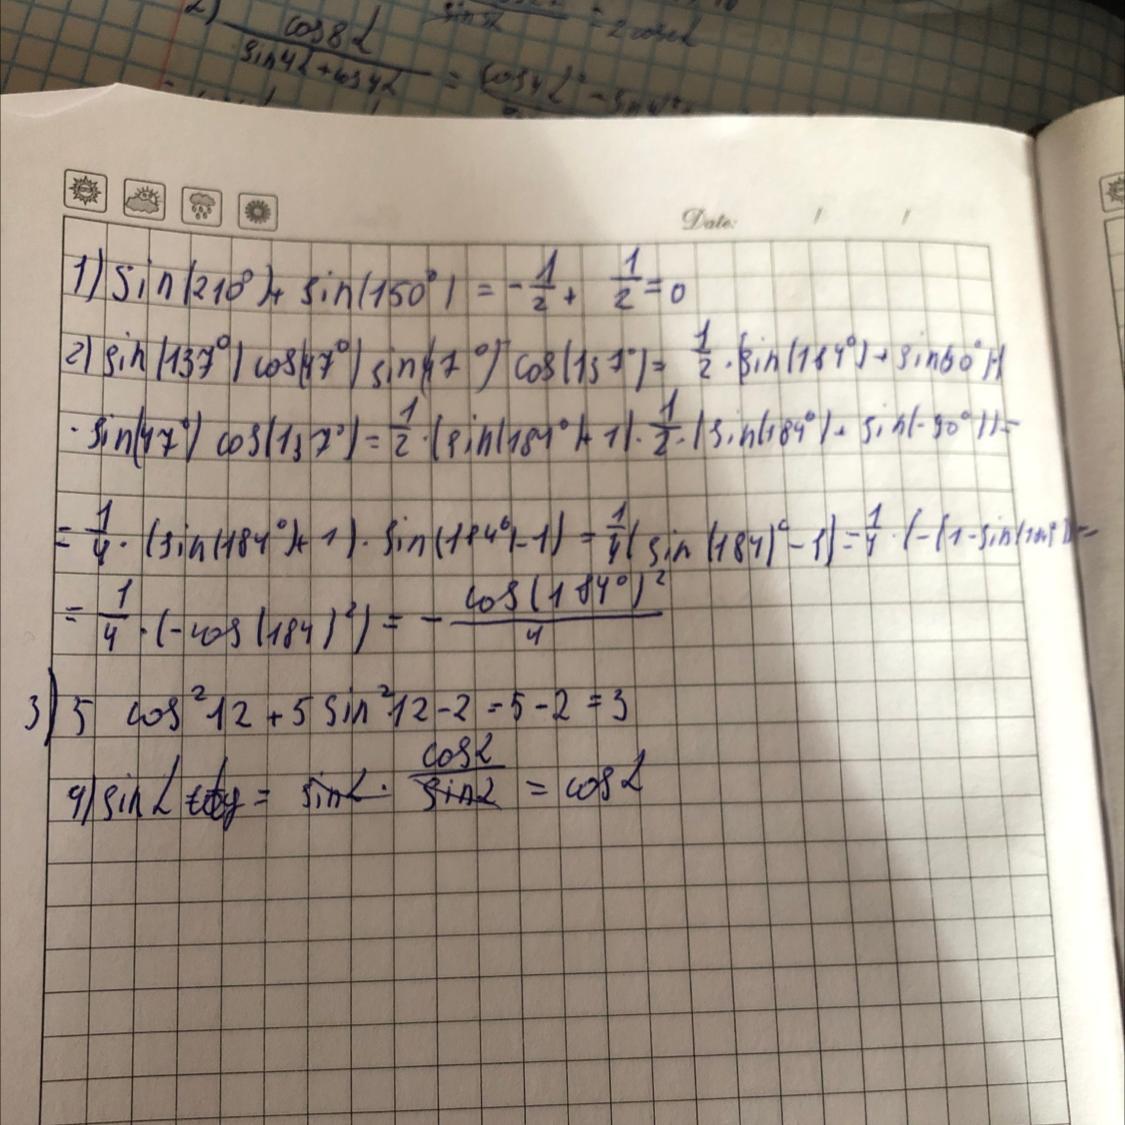 2) cos8α / (sin4α + cos4α) =
Date: / /
1) sin(210°) + sin(150°) = -1/2 + 1/2 = 0
2) sin(137°) cos(47°) sin(47°) cos(137°) = 1/2 · (sin(184°) + sin90°)·
· sin(47°) cos(137°) = 1/2 · (sin(184°) + 1) · 1/2 · (sin(184°) + sin(-90°)) =
= 1/4 · (sin(184°) + 1) · sin(184° - 1) = 1/4 (sin(184)² - 1) = 1/4 · (-(1 - sin
= 1/4 · (-cos(184)²) = - cos(184°)² / 4
3) 5 cos²12 + 5 sin²12 - 2 = 5 - 2 = 3
4) sin α ctg = sinα · cosα / sinα = cos α